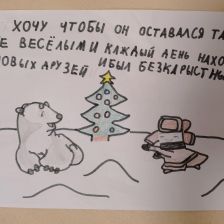 ХОЧУ ЧТОБЫ ОН ОСТАВАЛСЯ ТА
Е ВЕСЁЛЫМ И КАЖДЫЙ ДЕНЬ НАХО
НОВЫХ ДРУЗЕЙ И БЫЛ БЕЗКАРЫСТНЫ